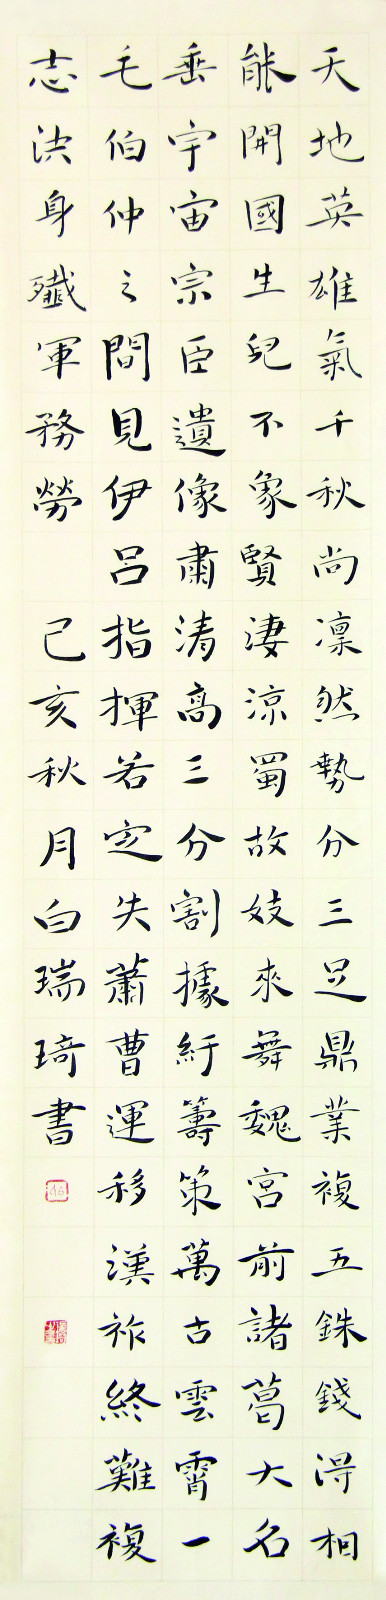 天地英雄氣千秋尚凜然勢分三足鼎業複五銖錢得相
能開國生兒不象賢淒涼蜀故妓來舞魏宮前諸葛大名
垂宇宙宗臣遺像肅清高三分割據紆籌策萬古雲霄一
毛伯仲之間見伊呂指揮若定失蕭曹運移漢祚終難複
志決身殲軍務勞 己亥秋月白瑞琦書